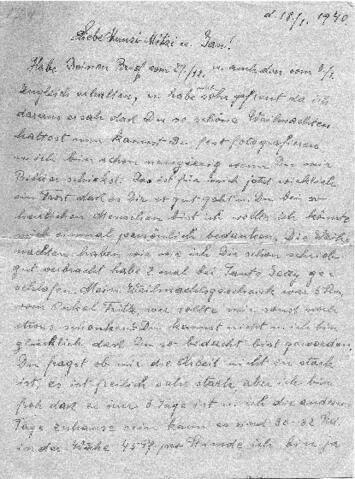 d. 18/1. 1940
Liebe Hunzi Mitzi u. Jan!
Habe Deinen Brief vom 27./12. u. auch den vom 3/1
zugleich erhalten, u. habe mich sehr gefreut da ich
daraus ersah dass Du so schöne Weihnachten
hattest nun kannst Du fest fotografieren
u. ich bin schon neugierig wenn Du mir
Bilder schickst. Das ist für mich jetzt wirklich
ein Trost dass es Dir so gut geht u. Du bei so
herrlichen Menschen bist ich wollte ich könnte
mich einmal persönlich bedanken. Die Weih
nachten haben wir wie ich Dir schon schrieb
gut verbracht habe 2 mal bei Tante ge
schlafen. Mein Weihnachtsgeschenk war 5
vom Onkel Fritz, wer sollte mir sonst noch
etwas schenken? Du kannst nicht u. ich bin
glücklich dass Du so bedacht bist geworden.
Du fragst ob mir die Arbeit nicht zu stark
ist, es ist freilich sehr stark aber ich bin
froh dass es nur 3 Tage ist u. ich die anderen
Tage zuhause sein kann es sind 30-32
in der Woche 45 pro Stunde ich bin ja